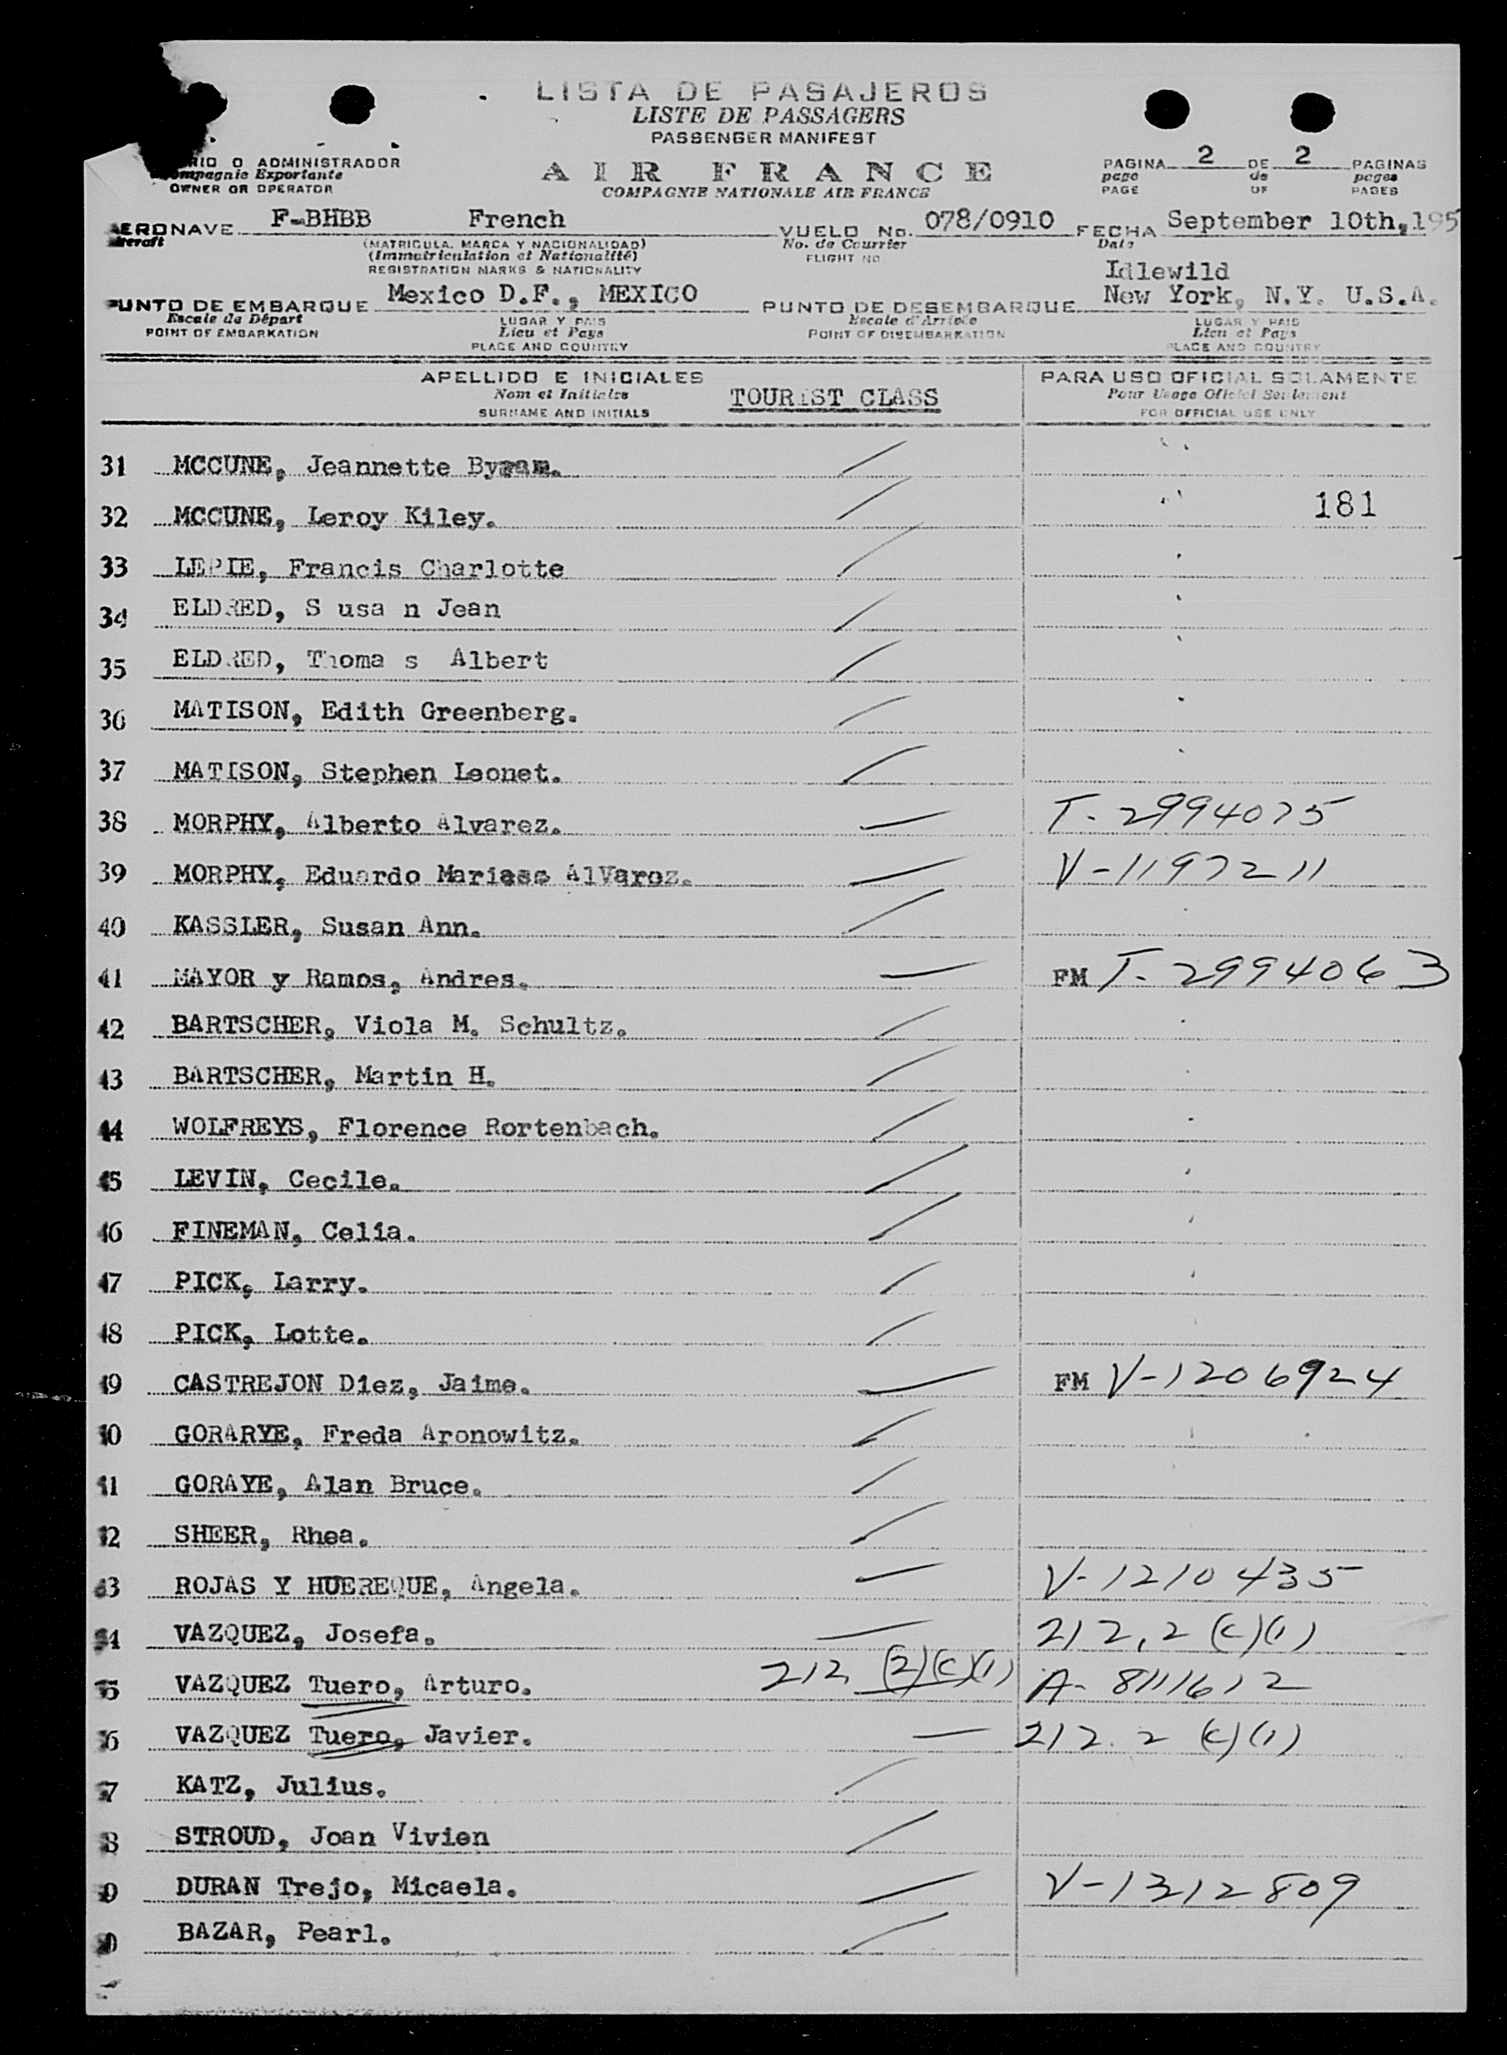 LISTA DE PASAJEROS
LISTE DE PASSAGERS
PASSENGER MANIFEST
RIO O ADMINISTRADOR
ompagnie Exportante
OWNER OR OPERATOR
AIR FRANCE
COMPAGNIE NATIONALE AIR FRANCE
PAGINA 2 DE 2 PAGINAS
page de pages
PAGE OF PAGES
AERONAVE F-BHBB French VUELO No. 078/0910 FECHA September 10th, 195
Aircraft (MATRICULA, MARCA Y NACIONALIDAD) No. de Courrier Date
(Immatriculation et Nationalité) FLIGHT NO
REGISTRATION MARKS & NATIONALITY
Idlewild
PUNTO DE EMBARQUE Mexico D.F., MEXICO PUNTO DE DESEMBARQUE New York, N.Y. U.S.A.
Escale de Départ LUGAR Y PAIS Escale d'Arrivée LUGAR Y PAIS
POINT OF EMBARKATION Lieu et Pays POINT OF DISEMBARKATION Lieu et Pays
PLACE AND COUNTRY PLACE AND COUNTRY
APELLIDO E INICIALES PARA USO OFICIAL SOLAMENTE
Nom et Initiales TOURIST CLASS Pour Usage Officiel Seulement
SURNAME AND INITIALS FOR OFFICIAL USE ONLY
31 MCCUNE, Jeannette
32 MCCUNE, Leroy Kiley. 181
33 LEPIE, Francis Charlotte
34 ELDRED, S usa n Jean
35 ELDRED, Thoma s Albert
36 MATISON, Edith Greenberg.
37 MATISON, Stephen Leonet.
38 MORPHY, Alberto Alvarez. T-2994075
39 MORPHY, Eduardo AlVaroz. V-1197211
40 KASSLER, Susan Ann.
41 MAYOR y Ramos, Andres. FM T-2994063
42 BARTSCHER, Viola M. Schultz.
43 BARTSCHER, Martin H.
44 WOLFREYS, Florence Rortenbach.
45 LEVIN, Cecile.
46 FINEMAN, Celia.
47 PICK, Larry.
48 PICK, Lotte.
49 CASTREJON Diez, Jaime. FM V-1206924
10 GORARYE, Freda Aronowitz.
11 GORAYE, Alan Bruce.
12 SHEER, Rhea.
3 ROJAS Y HUEREQUE, Angela. V-1210435
4 VAZQUEZ, Josefa. 212.2 (c)(1)
5 VAZQUEZ Tuero, Arturo. 212 (2)(c)(1) A-8111612
6 VAZQUEZ Tuero, Javier. 212.2 (c)(1)
7 KATZ, Julius.
8 STROUD, Joan Vivien
9 DURAN Trejo, Micaela. V-1312809
0 BAZAR, Pearl.